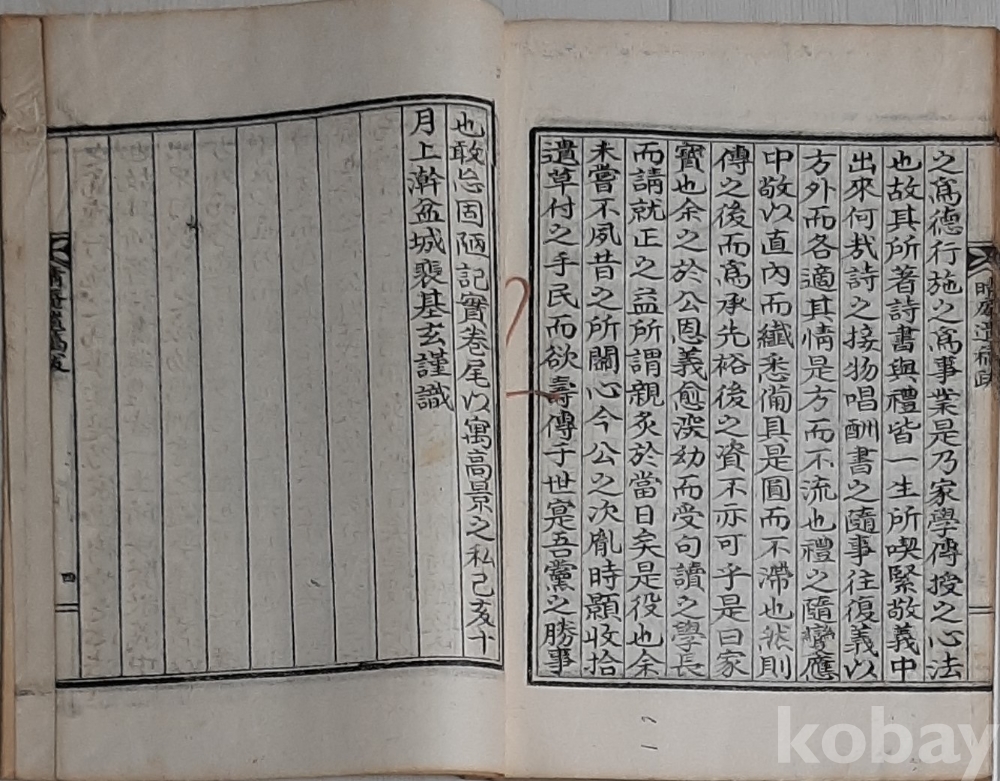 之爲德行施之爲事業是乃家學傳授之心法
也故其所著詩書與禮皆一生所喫緊敬義中
出來何㢤詩之接物唱酬書之隨事往復義以
方外而各適其情是方而不流也禮之隨變應
中敬以直內而纖悉備具是圓而不滯也然則
傳之後而爲承先裕後之資不亦可乎是曰家
實也余之於公恩義愈深幼而受句讀之學長
而請就正之益所謂親炙於當日矣是役也余
未嘗不夙昔之所關心今公之次胤時顯收拾
遺草付之手民而欲壽傳于世寔吾黨之勝事
也敢忘固陋記實卷尾以寓高景之私己亥十
月上澣盆城裵基玄謹識
四
kobay